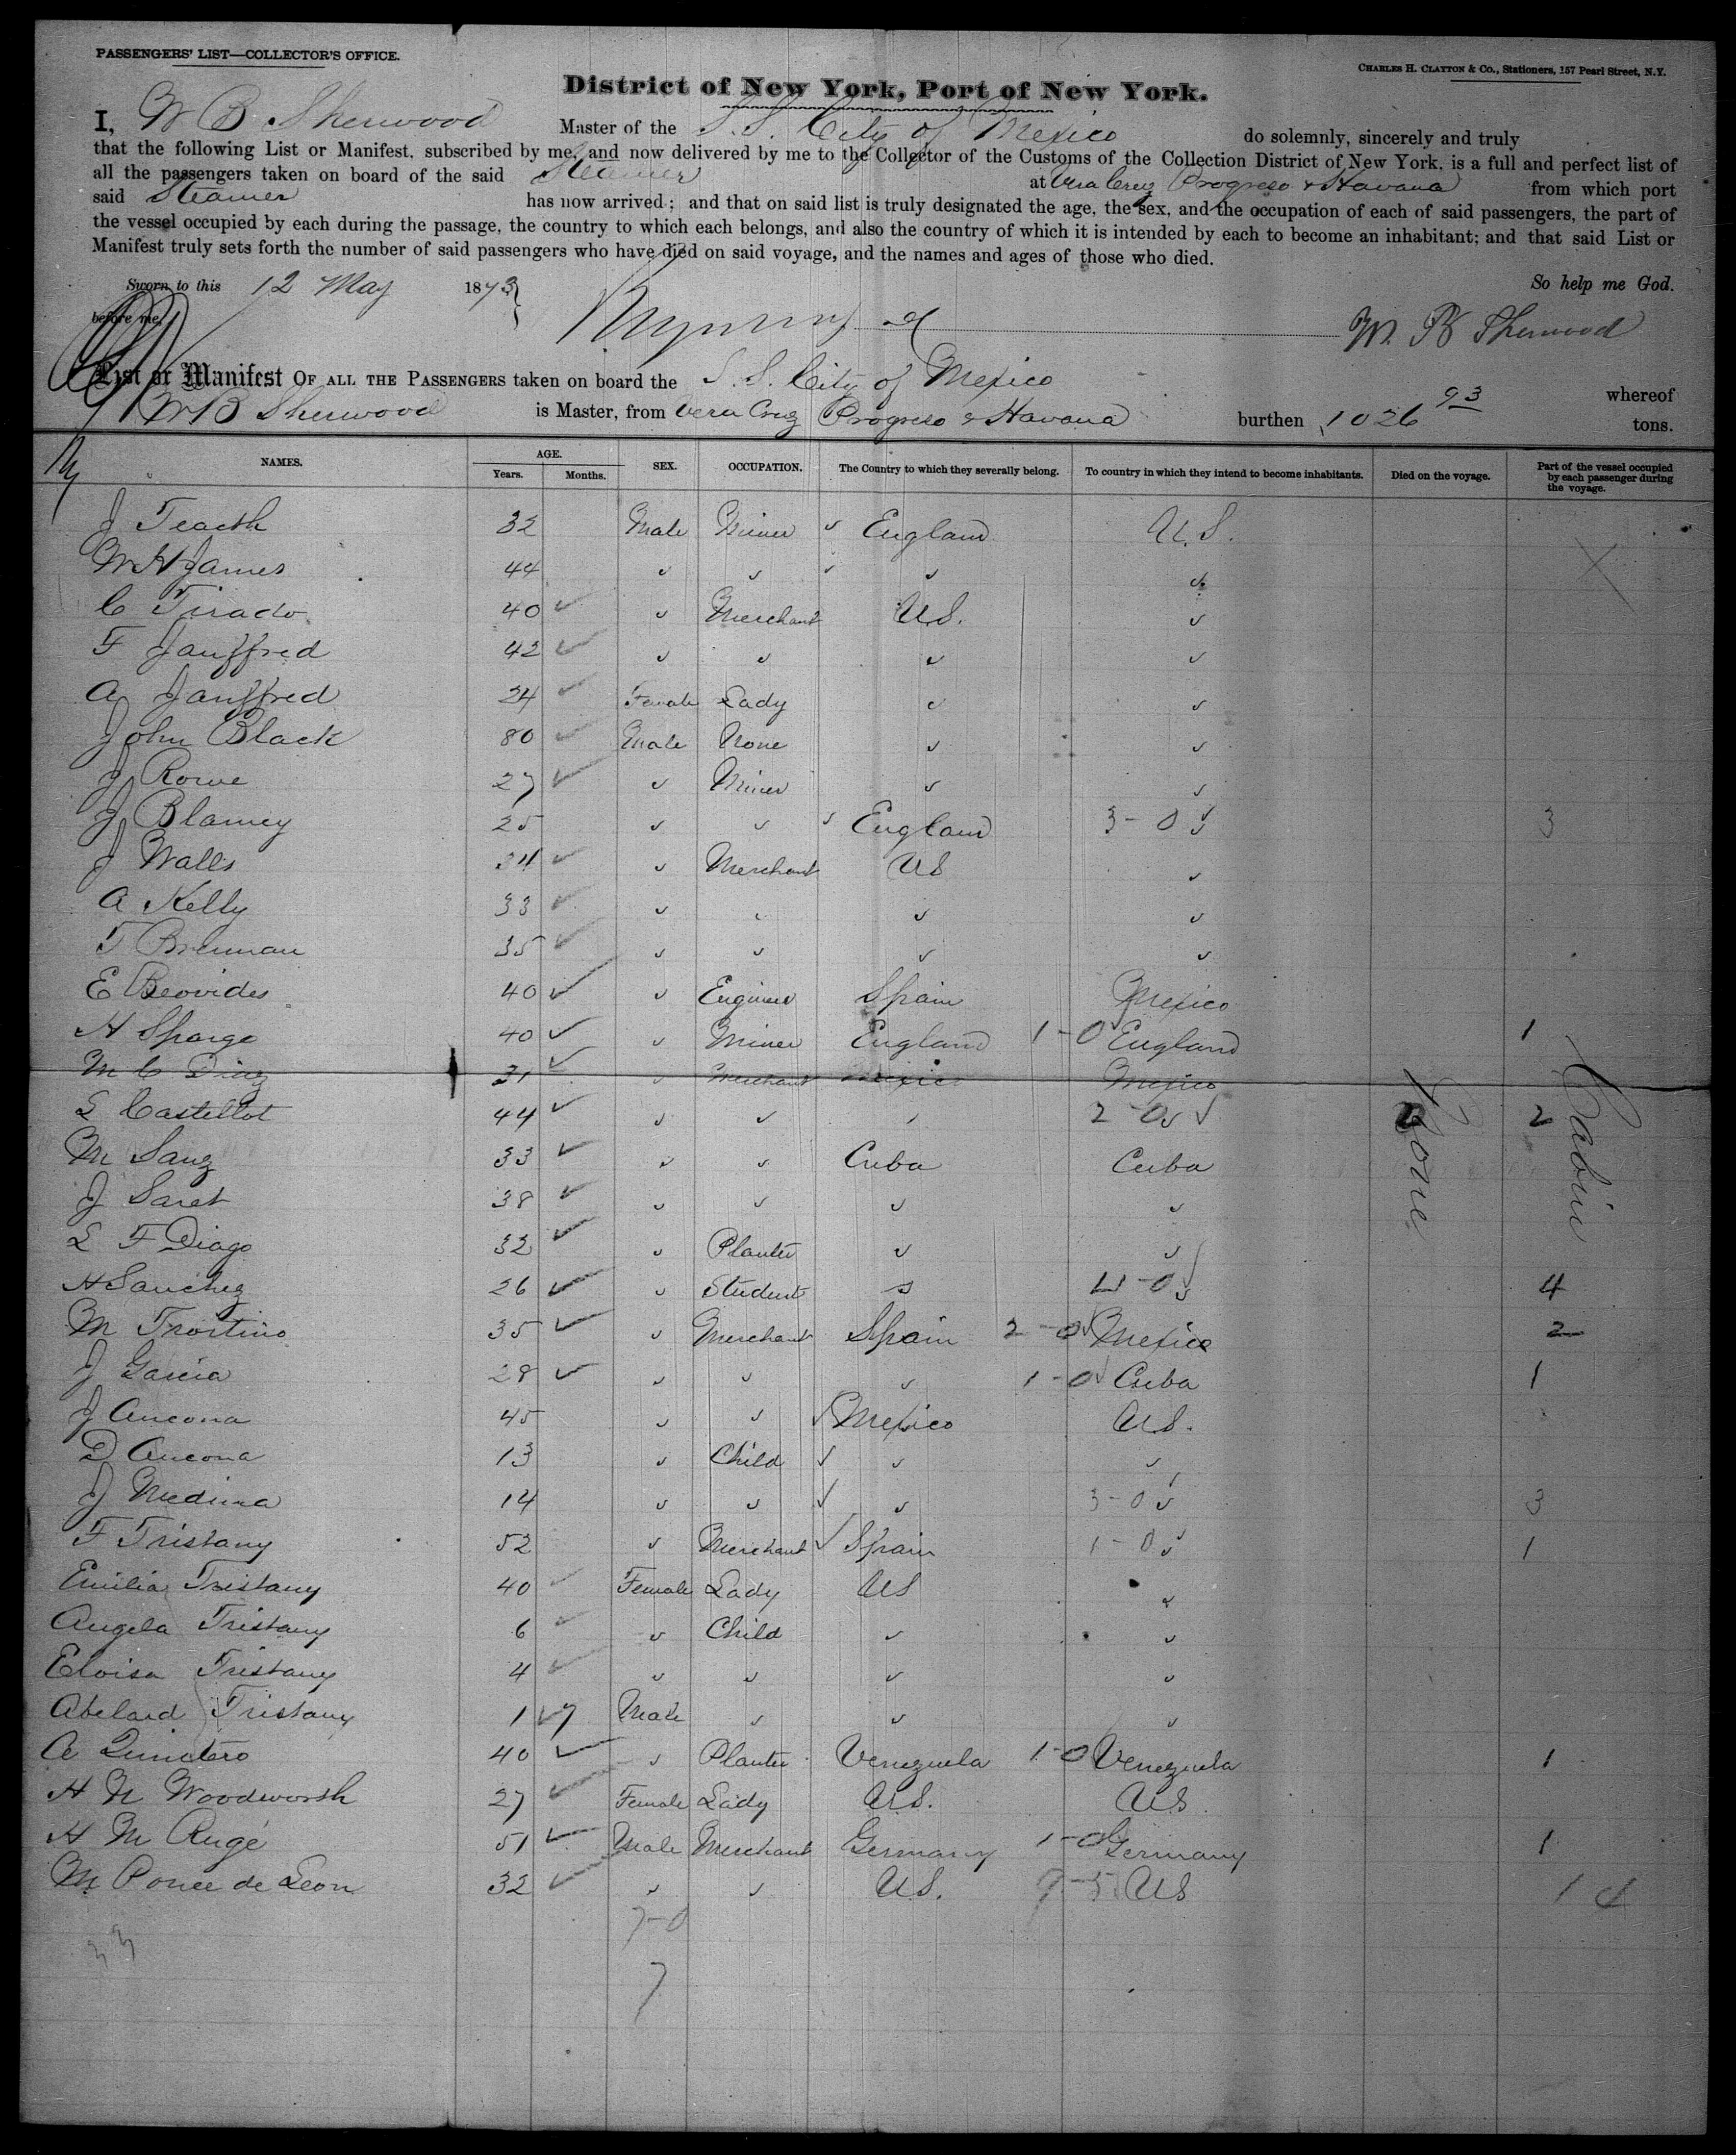 PASSENGERS' LIST—COLLECTOR'S OFFICE.
CHARLES H. CLAYTON & Co., Stationers, 157 Pearl Street, N.Y.
District of New York, Port of New York.
I, W B Sherwood Master of the S.S. City of Mexico do solemnly, sincerely and truly
that the following List or Manifest, subscribed by me, and now delivered by me to the Collector of the Customs of the Collection District of New York, is a full and perfect list of
all the passengers taken on board of the said Steamer at Vera Cruz Progreso & Havana from which port
said Steamer has now arrived; and that on said list is truly designated the age, the sex, and the occupation of each of said passengers, the part of
the vessel occupied by each during the passage, the country to which each belongs, and also the country of which it is intended by each to become an inhabitant; and that said List or
Manifest truly sets forth the number of said passengers who have died on said voyage, and the names and ages of those who died.
Sworn to this 12 May 1873 So help me God.
before me, W. B Sherwood
List or Manifest OF ALL THE PASSENGERS taken on board the S.S. City of Mexico whereof
W B Sherwood is Master, from Vera Cruz Progreso & Havana burthen 1026 93 tons.
NAMES. AGE. Years. Months. SEX. OCCUPATION. The Country to which they severally belong. To country in which they intend to become inhabitants. Died on the voyage. Part of the vessel occupied by each passenger during the voyage.
J Teacth 32 Male Miner England U.S.
W H James 44 " " " "
C Tirado 40 " Merchant U.S. "
F Jauffred 42 " " " "
A Jauffred 24 Female Lady " "
John Black 80 Male None " "
J Rowe 27 " Miner " "
J Blamey 25 " " England 3-0 " 3
J Walls 34 " Merchant US "
A Kelly 33 " " " "
T Brennan 35 " " " "
E Beovides 40 " Engineer Spain Mexico
H Spargo 40 " Miner England 1-0 England 1
M C Diaz 31 " Merchant Mexico Mexico
L Castellot 44 " " " 2-0 " 2
M Sanz 33 " " Cuba Cuba
J Saret 38 " " " "
L F Diago 32 " Planter " "
H Sanchez 26 " Student " 4-0 " 4
M Trortino 35 " Merchant Spain 2-0 Mexico 2
J Garcia 28 " " " 1-0 Cuba 1
J Ancona 45 " " Mexico U.S.
D Ancona 13 " Child " "
J Medina 14 " " " 3-0 " 3
F Tristany 52 " Merchant Spain 1-0 " 1
Emilia Tristany 40 Female Lady US "
Angela Tristany 6 " Child " "
Eloisa Tristany 4 " " " "
Abelard Tristany 1 7 Male " " "
A Quintero 40 " Planter Venezuela 1-0 Venezuela 1
H N Woodworth 27 Female Lady U.S. US
H M Rugé 51 Male Merchant Germany 1-0 Germany 1
M Ponce de Leon 32 " " U.S. 9-5 US 14
None
Cabin
7-0
33
7